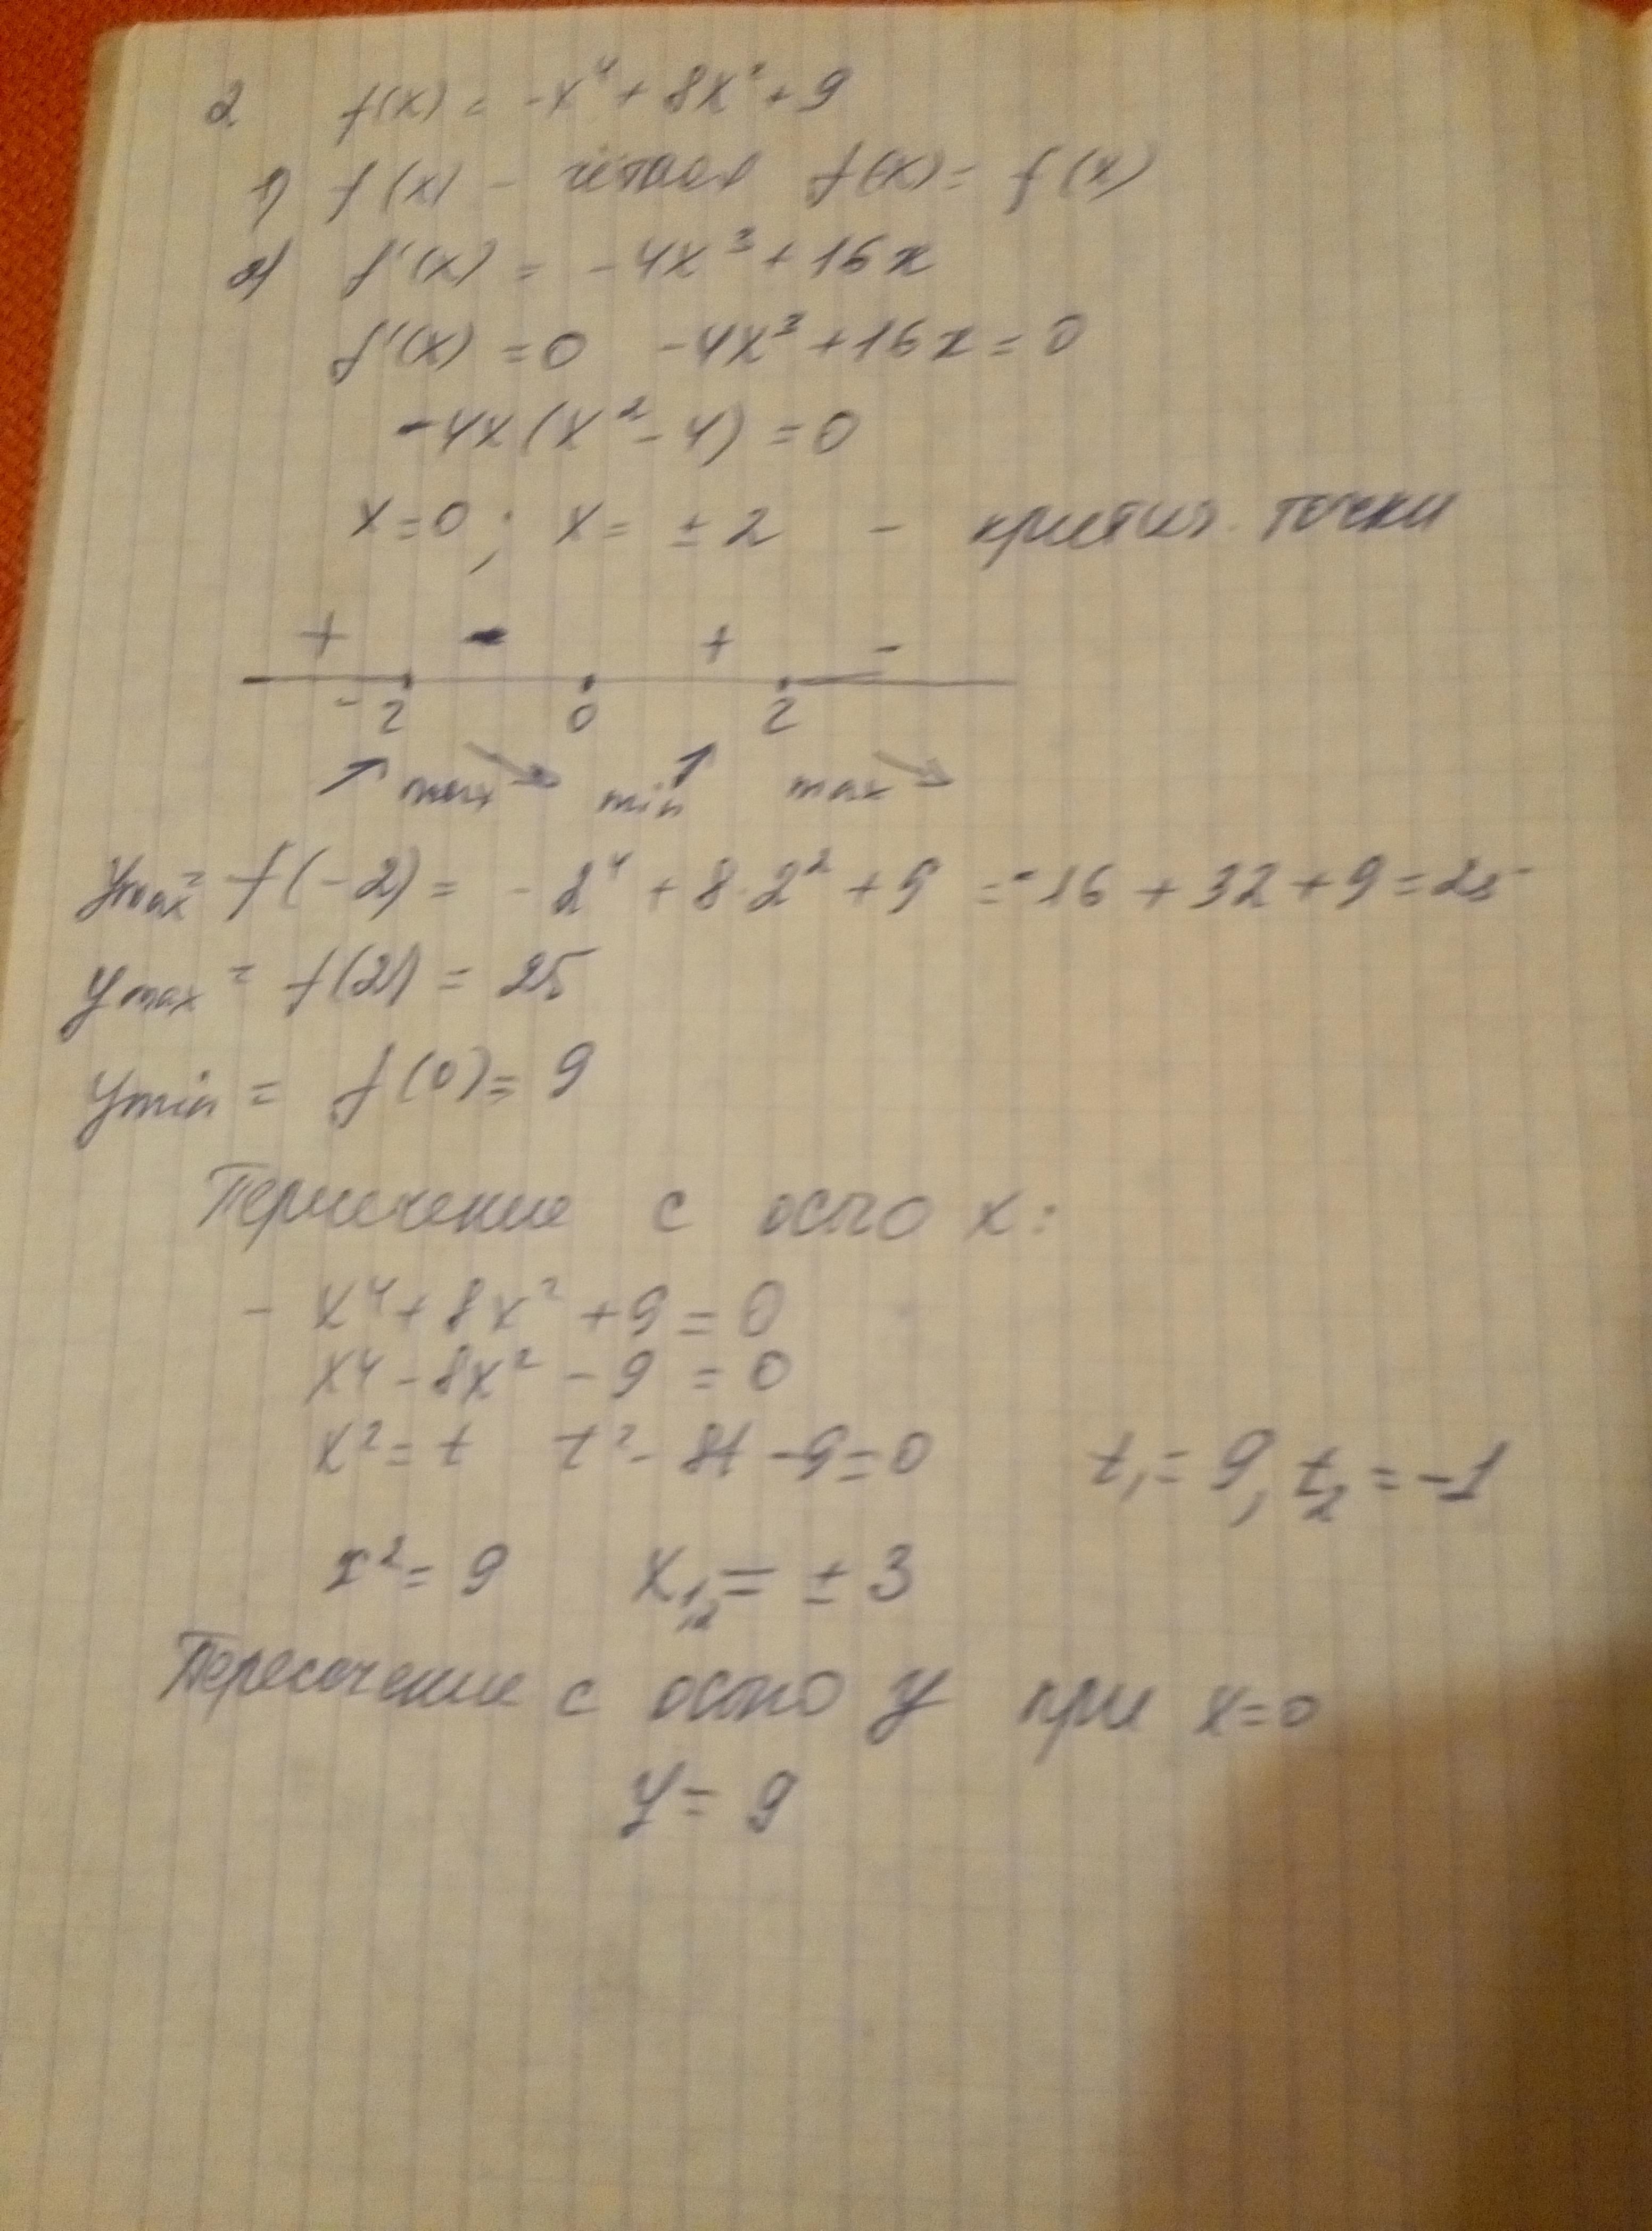 2 f(x) = -x⁴ + 8x² + 9
1) f(x) - чётная f(x) = f(x)
2) f'(x) = -4x³ + 16x
f'(x) = 0 -4x³ + 16x = 0
-4x(x² - 4) = 0
x = 0; x = ± 2 - критич. точки
+ - + -
-2 0 2
↗ max ↘ min ↗ max ↘
ymax = f(-2) = -2⁴ + 8·2² + 9 = -16 + 32 + 9 = 25
ymax = f(2) = 25
ymin = f(0) = 9
Пересечение с осью x:
- x⁴ + 8x² + 9 = 0
x⁴ - 8x² - 9 = 0
x² = t t² - 8t - 9 = 0 t₁ = 9, t₂ = -1
x² = 9 x₁,₂ = ± 3
Пересечение с осью y при x = 0
y = 9